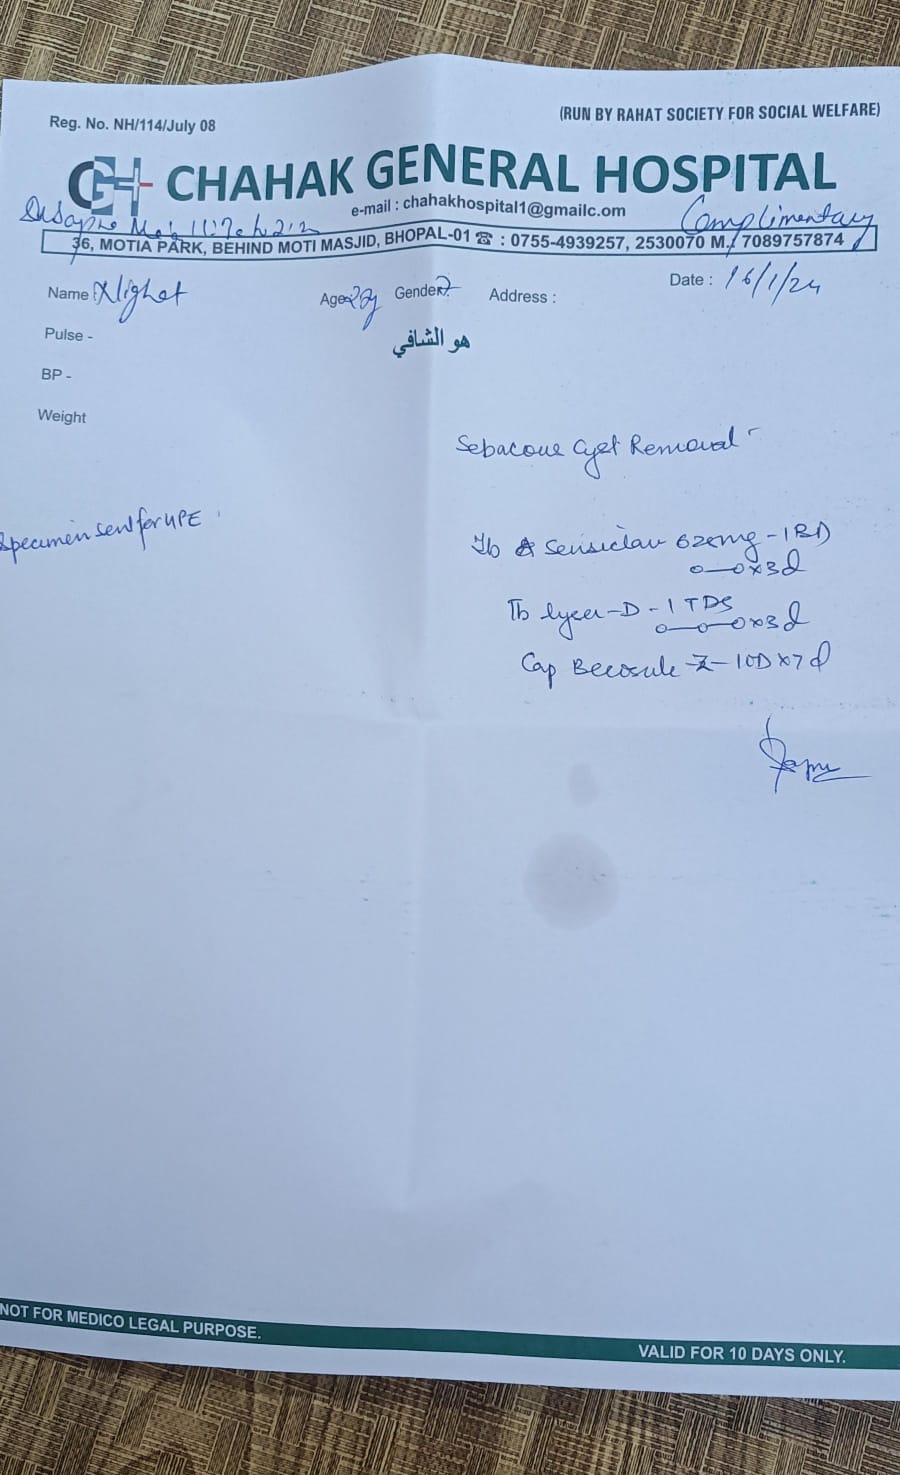 Reg. No. NH/114/July 08
(RUN BY RAHAT SOCIETY FOR SOCIAL WELFARE)
CHAHAK GENERAL HOSPITAL
e-mail : chahakhospital1@gmailc.om
Complimentary
36, MOTIA PARK, BEHIND MOTI MASJID, BHOPAL-01 ☎ : 0755-4939257, 2530070 M. 7089757874
Name : Nighat
Age
Gender
Address :
Date : 16/1/24
Pulse -
هو الشافي
BP -
Weight
Sebaceous Cyst Removal
Specimen sent for HPE
Tb Sensiclav 625mg - 1 BD
o—o x 3d
Tb lyser-D - 1 TDS
o—o—o x 3d
Cap Becosule Z - 1 OD x 7d
NOT FOR MEDICO LEGAL PURPOSE.
VALID FOR 10 DAYS ONLY.